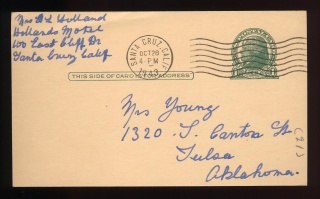 Mrs B L Holland
Hollands Motel
100 East Cliff Dr
Santa Cruz Calif
SANTA CRUZ, CALIF.
OCT 28
4 - PM
THIS SIDE OF CARD IS FOR ADDRESS
Mrs Young
1320 S. Canton St
Tulsa
Oklahoma.
(21)